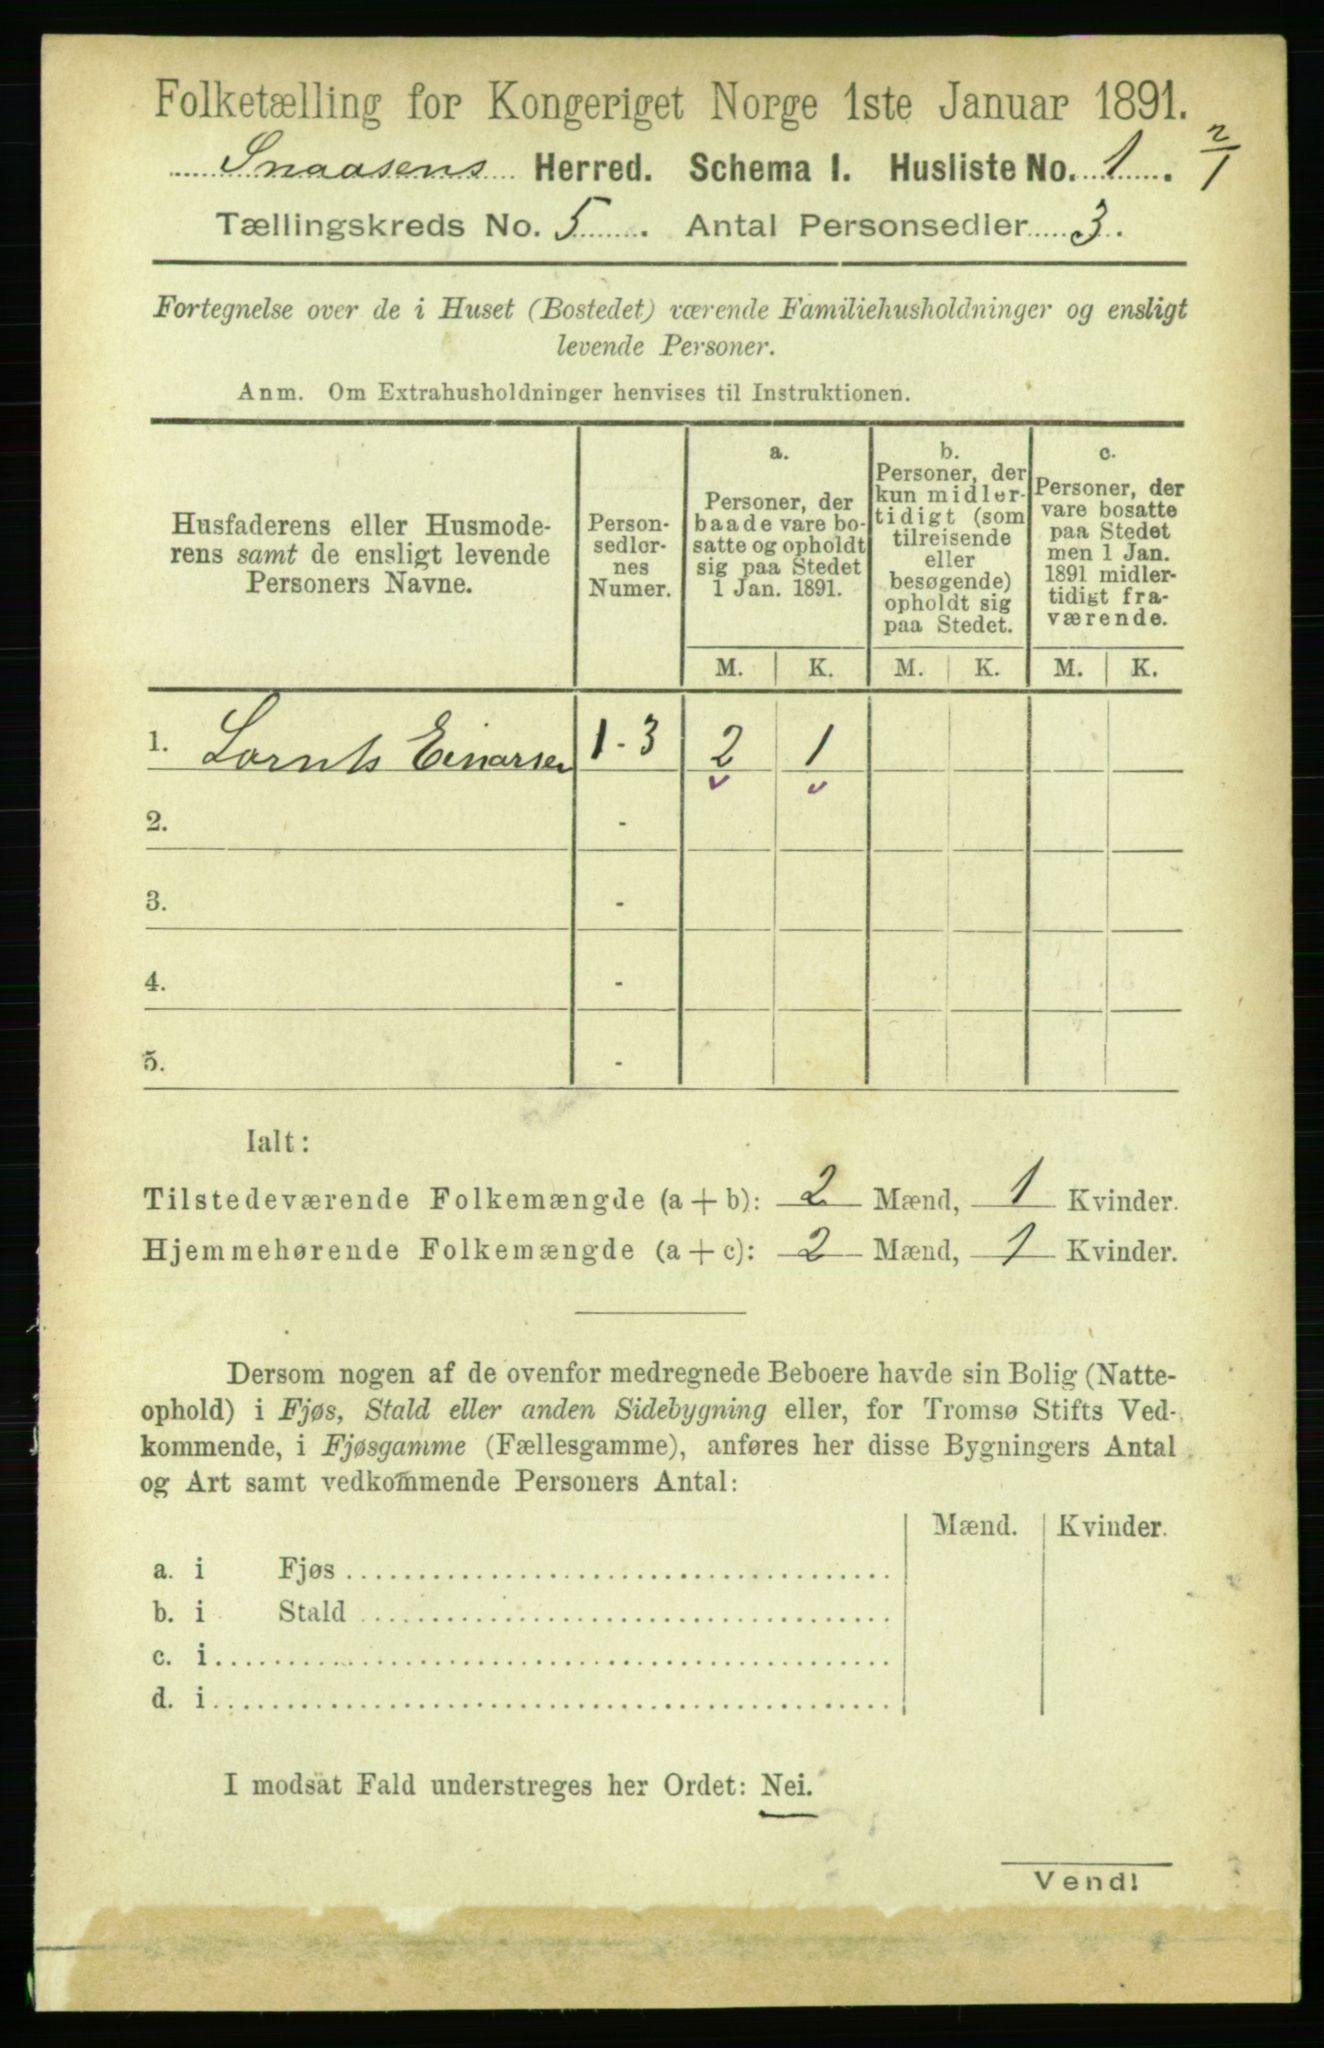 Folketælling for Kongeriget Norge 1ste Januar 1891.
Snaasens Herred. Schema 1. Husliste No. 1. 2/1
Tællingskreds No. 5. Antal Personsedler 3.
Fortegnelse over de i Huset (Bostedet) værende Familiehusholdninger og ensligt
levende Personer.
Anm. Om Extrahusholdninger henvises til Instruktionen.
Husfaderens eller Husmode-
rens samt de ensligt levende
Personers Navne.
Person-
sedler-
nes
Numer.
a.
Personer, der
baade vare bo-
satte og opholdt
sig paa Stedet
1 Jan. 1891.
b.
Personer, der
kun midler-
tidigt (som
tilreisende
eller
besøgende)
opholdt sig
paa Stedet.
c.
Personer, der
vare bosatte
paa Stedet
men 1 Jan.
1891 midler-
tidigt fra-
værende.
M. K. M. K. M. K.
1. Lornts Einarsen 1-3 2 1
2. -
3. -
4. -
5. -
Ialt:
Tilstedeværende Folkemængde (a + b): 2 Mænd, 1 Kvinder.
Hjemmehørende Folkemængde (a + c): 2 Mænd, 1 Kvinder.
Dersom nogen af de ovenfor medregnede Beboere havde sin Bolig (Natte-
ophold) i Fjøs, Stald eller anden Sidebygning eller, for Tromsø Stifts Ved-
kommende, i Fjøsgamme (Fællesgamme), anføres her disse Bygningers Antal
og Art samt vedkommende Personers Antal:
Mænd. Kvinder.
a. i Fjøs
b. i Stald
c. i
d. i
I modsat Fald understreges her Ordet: Nei.
Vend!